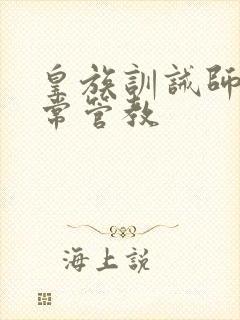 皇族訓誡師
常管教
海上説